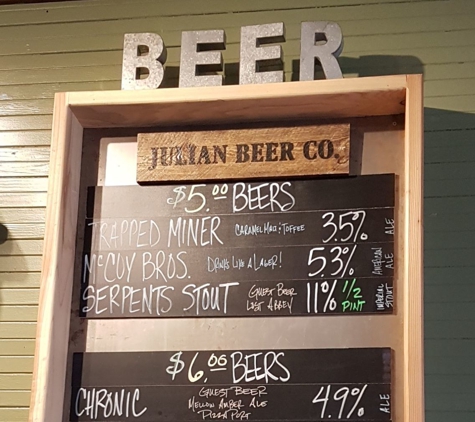 BEER
JULIAN BEER CO.
$5.00 BEERS
TRAPPED MINER CARAMEL MALT: TOFFEE 3.5% ALE
McCOY BROS. DRINKS LIKE A LAGER! 5.3% AMERICAN ALE
SERPENTS STOUT GUEST BEER LOST ABBEY 11% 1/2 PINT IMPERIAL STOUT
$6.00 BEERS
CHRONIC GUEST BEER MELLOW AMBER ALE PIZZA PORT 4.9% ALE